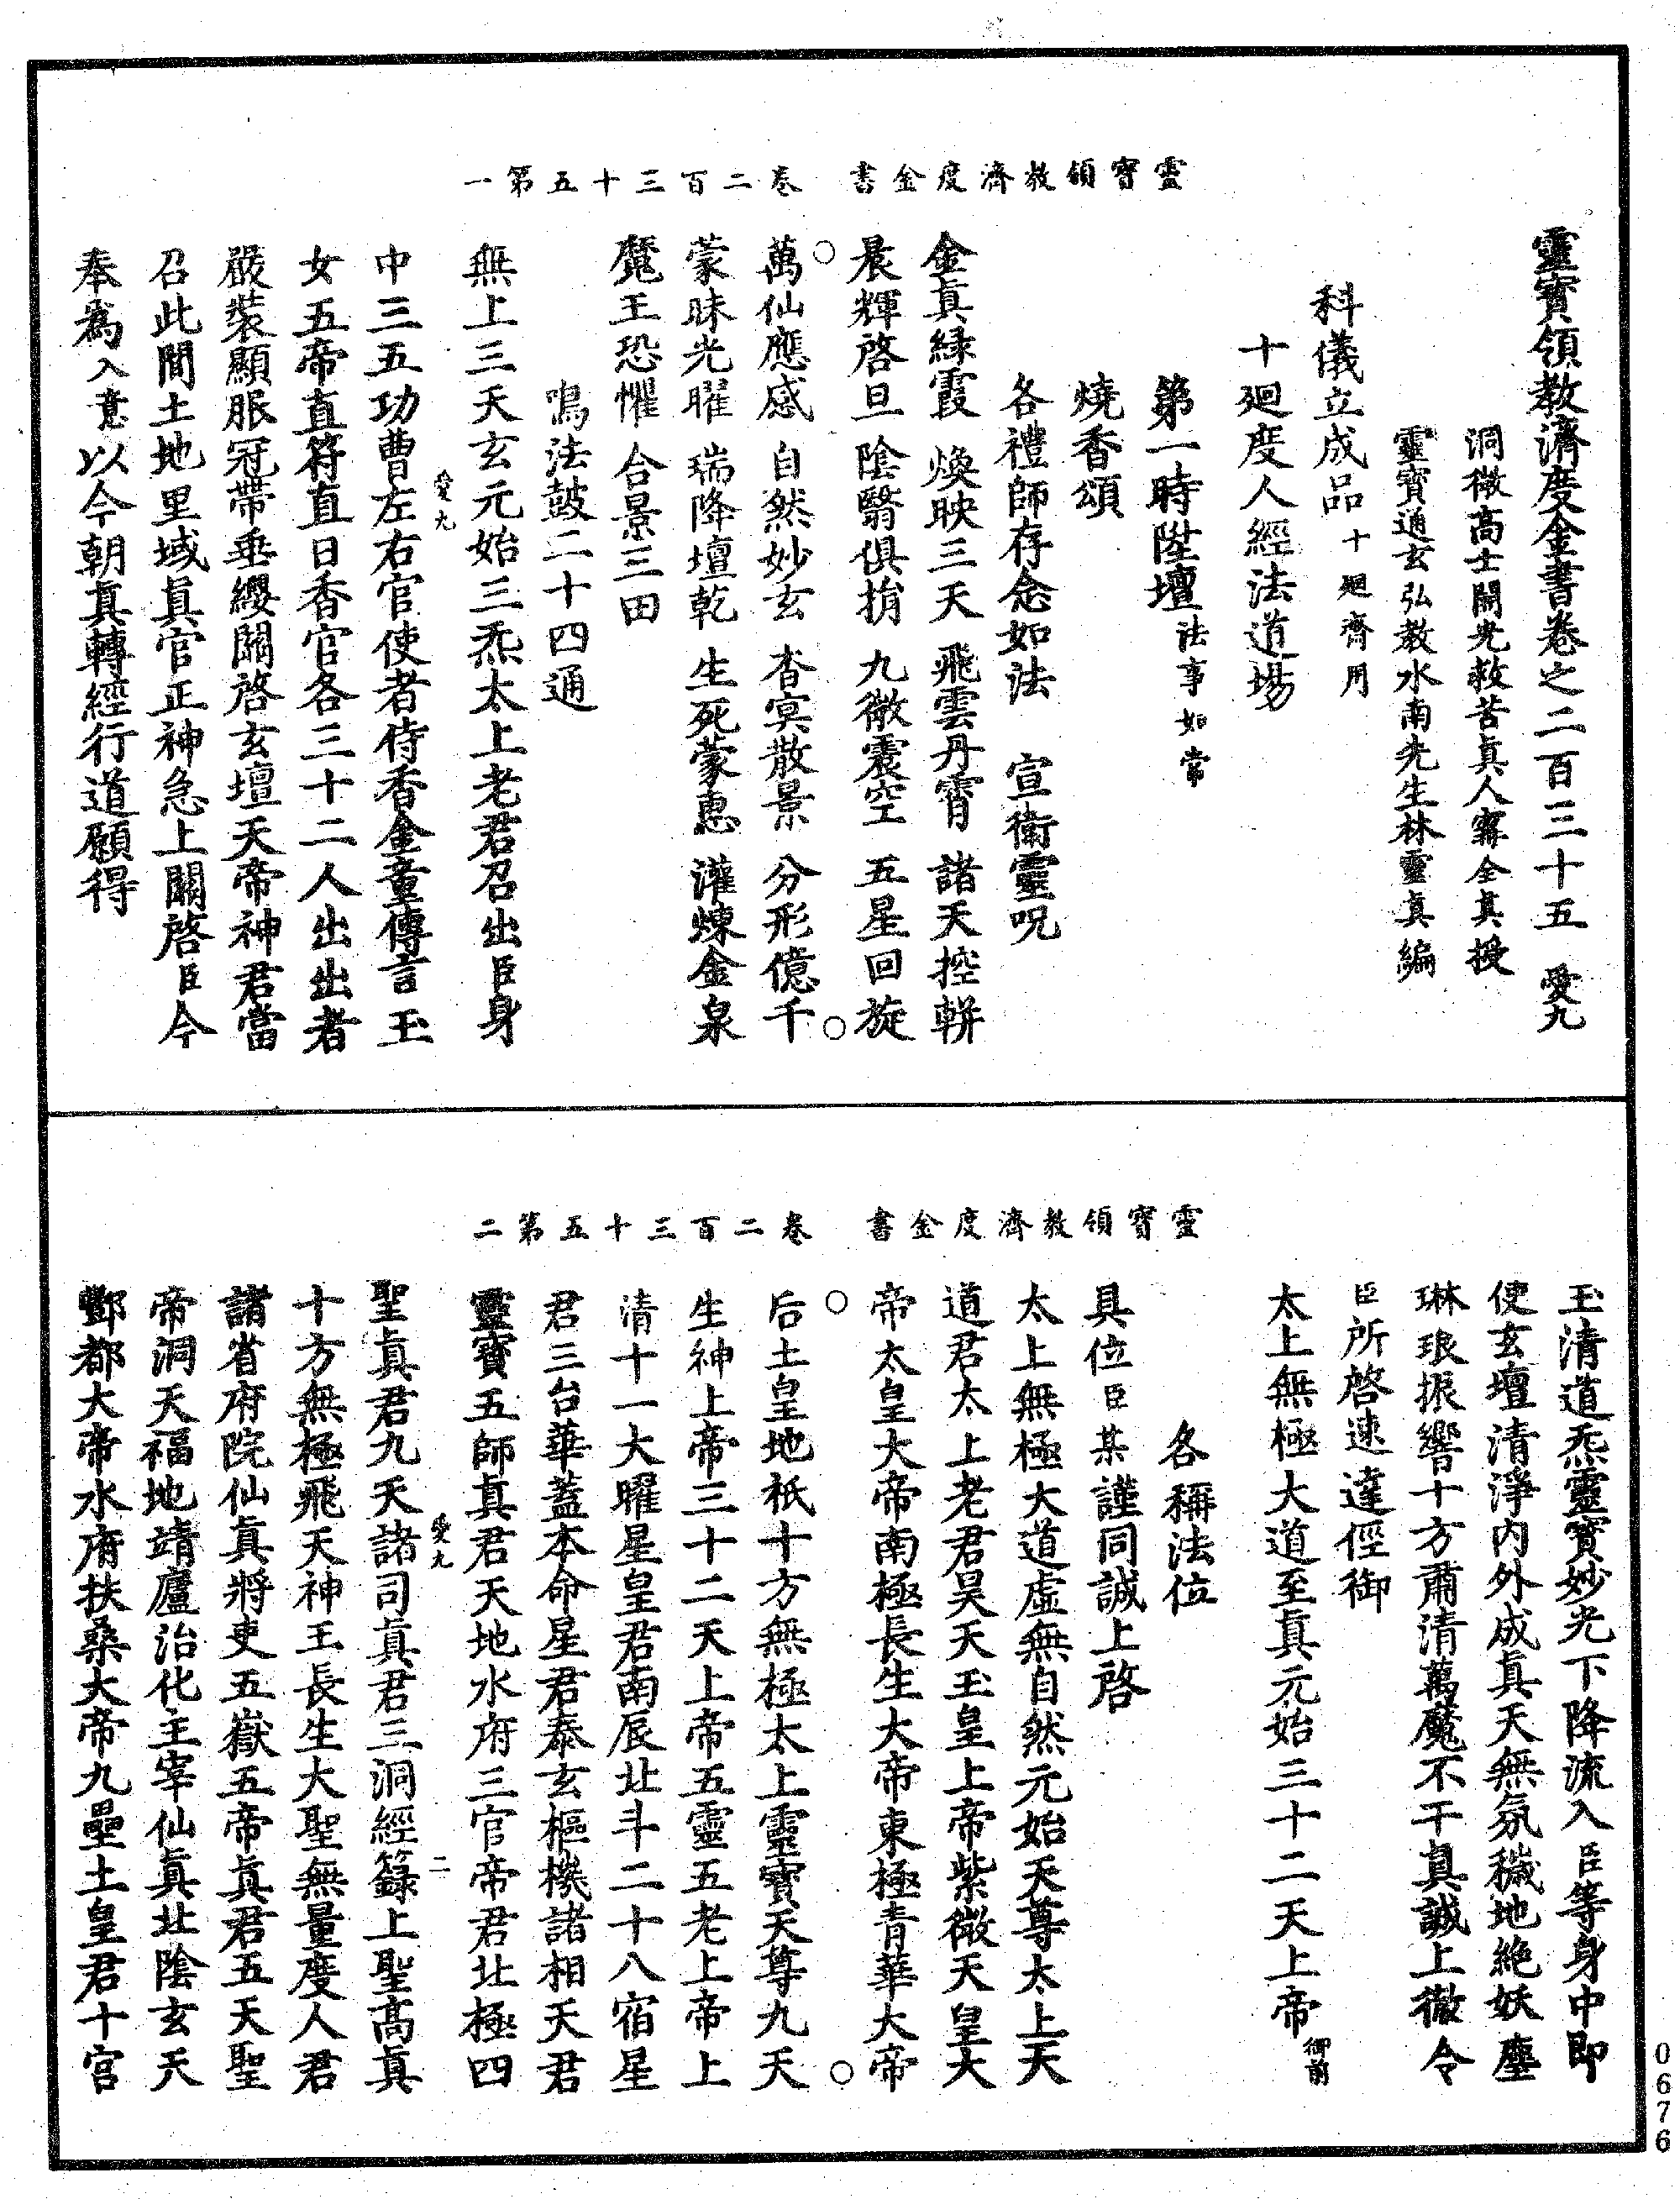 靈寶領教濟度金書　卷二百三十五第一
靈寶領教濟度金書卷之二百三十五　愛九
洞微高士開光救苦真人甯全真授
靈寶通玄弘教水南先生林靈真編
科儀立成品十廻齋用
十廻度人經法道場
第一時陞壇法事如常
燒香頌
各禮師存念如法　宣衛靈呪
金真綠霞　煥映三天　飛雲丹霄　諸天控軿
晨輝啓旦　陰翳俱捐　九微震空　五星回旋
萬仙應感　自然妙玄　杳冥散景　分形億千
蒙昧光曜　瑞降壇乾　生死蒙惠　灌煉金泉
魔王恐懼　合景三田
鳴法鼓二十四通
無上三天玄元始三炁太上老君召出臣身
愛九
中三五功曹左右官使者侍香金童傳言玉
女五帝直符直日香官各三十二人出出者
嚴裝顯服冠帶垂纓關啓玄壇天帝神君當
召此間土地里域眞官正神急上關啓臣今
奉爲入意以今朝眞轉經行道願得
靈寶領教濟度金書　卷二百三十五第二
玉清道炁靈寶妙光下降流入臣等身中即
使玄壇清淨內外成眞天無氛穢地絕妖塵
琳琅振響十方肅清萬魔不干眞誠上徹令
臣所啓速達徑御
太上無極大道至眞元始三十二天上帝御前
各稱法位
具位臣某謹同誠上啓
太上無極大道虛無自然元始天尊太上天
道君太上老君昊天玉皇上帝紫微天皇大
帝太皇大帝南極長生大帝東極青華大帝
后土皇地祇十方無極太上靈寶天尊九天
生神上帝三十二天上帝五靈五老上帝上
清十一大曜星皇君南辰北斗二十八宿星
君三台華蓋本命星君泰玄樞機諸相天君
靈寶五師真君天地水府三官帝君北極四
愛九　二
聖眞君九天諸司眞君三洞經籙上聖高眞
十方無極飛天神王長生大聖無量度人君
諸省府院仙眞將吏五嶽五帝眞君五天聖
帝洞天福地靖廬治化主宰仙眞北陰玄天
酆都大帝水府扶桑大帝九壘土皇君十宮
0676